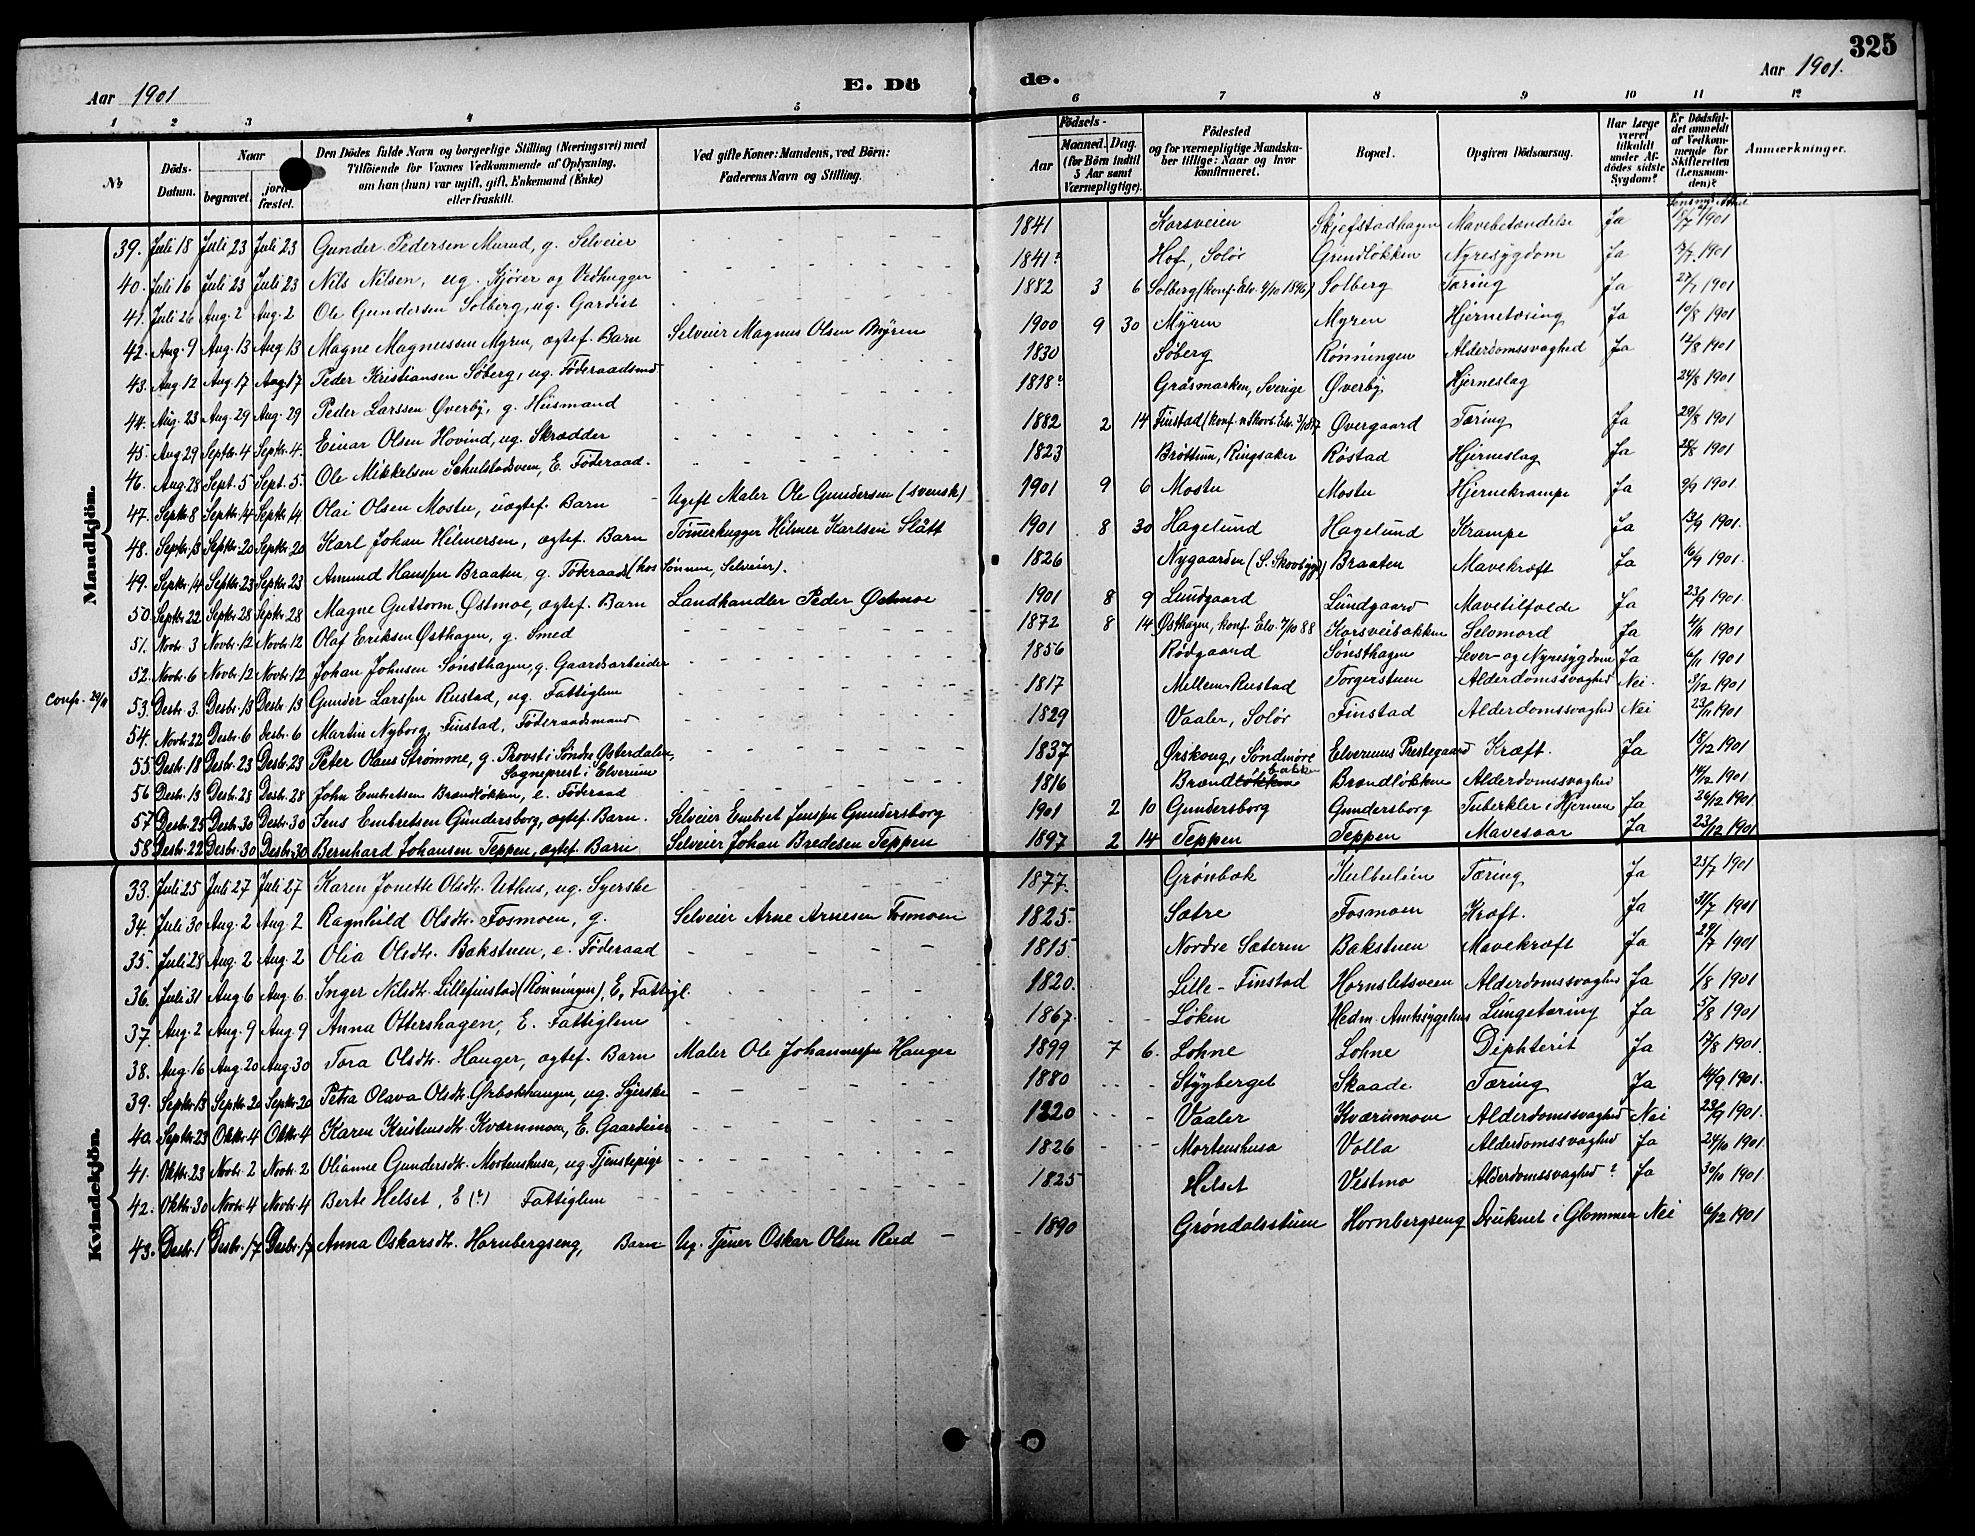 325
Aar 1901
E. Dö de.
Aar 1901.
1 2 3 4 5 6 7 8 9 10 11 12
No
Döds-Datum.
Naar
begravet.
jord-fæstet.
Den Dödes fulde Navn og borgerlige Stilling (Næringsvei) med
Tilföiende for Voxnes Vedkommende af Oplysning,
om han (hun) var ugift, gift, Enkemand (Enke)
eller fraskilt.
Ved gifte Koner: Mandens, ved Börn:
Faderens Navn og Stilling.
Födsels-
Aar
Maaned. Dag.
(for Börn indtil
5 Aar samt
Værnepligtige).
Födested
og for værnepligtige Mandska-
ber tillige: Naar og hvor
konfirmeret.
Bopæl.
Opgiven Dödsaarsag.
Har Læge
været
tilkaldt
under Af-
dödes sidste
Sygdom?
Er Dödsfal-
det anmeldt
af Vedkom-
mende for
Skifteretten
(Lensman-
den)?
Anmerkninger.
Mandkjön.
39. Juli 18 Juli 23 Juli 23 Gunder Pedersen Murud, g. Selveier 1841 Korsveien Skjefstadhagen Mavebetændelse Ja 1901
40. Juli 16 Juli 23 Juli 23 Nils Nilsen, ug. Kjører og Vedhugger 1841? Hof, Solør Grindløkken Nyresygdom Ja 1901
41. Juli 26 Aug. 2 Aug. 2 Ole Gundersen Solberg, ug. Gardist 1882 3 6 Solberg (konf. Elv. 4/10 1896) Solberg Tæring Ja 27/7 1901
42. Aug. 9 Aug. 13 Aug 13 Magne Magnussen Myren, ægtef. Barn Selveier Magnus Olsen Myren 1900 9 30 Myren Myren Hjernetæring Ja 10/8 1901
43. Aug 12 Aug. 17 Aug. 17 Peder Kristiansen Søberg, ug. Føderaadsmd 1830 Søberg Rønningen Alderdomssvaghed Ja 12/8 1901
44. Aug. 23 Aug. 29 Aug. 29 Peder Larssen Øverby, g. Husmand 1818? Gräsmarken, Sverige Øverby Hjerneslag 24/8 1901
45. Aug 29 Septbr. 4 Septr. 4. Einar Olsen Hovind, ug. Skrædder 1882 2 14 Finstad Øvergaard Tæring Ja 29/8 1901
46. Aug. 28 Sept. 5 Sept. 5 Ole Mikkelsen Schulstadsveen, E. Føderaad. 1823 Brøttum, Ringsaker Røstad Hjerneslag Ja 28/8 1901
47. Septr. 8 Septr. 14 Septr. 14 Olai Olsen Mostu, uægtef. Barn Ugift Maler Ole Gundersen (svensk) 1901 9 6 Mostu Mostu Hjernekrampe Ja 9/9 1901
48. Septr. 13 Septr. 20 Septr. 20 Karl Johan Hilmersen, ægtef. Barn Tømmerhugger Hilmer Karlsen Slått 1901 8 30 Hagelund Hagelund Krampe Ja 13/9 1901.
49. Septr. 14 Septr. 23 Septr. 23 Amund Hanssen Braaten, g. Føderaad (hos Sønnen, Selveier). 1826 Nygaarden (S. Skovbygd) Braaten Mavekræft Ja 16/9 1901.
50. Septr. 22 Septr. 28 Septr. 28 Magne Guttorm Østmoe, ægtef. Barn Landhandler Peder Østmoe 1901 8 9 Lundgaard Lundgaard Mavetilfælde Ja 23/9 1901.
51. Novbr. 3 Novbr. 12 Novbr. 12 Olaf Eriksen Østhagen, g. Smed 1872 8 14 Østhagen, konf. Elv. 7/10 88 Korsveibakken Selvmord Ja 4/11 1901
52. Novbr. 6 Novbr. 12 Novbr. 12 Johan Johnsen Sønsthagen, g. Gaardsarbeider 1856 Rødgaard Sønsthagen Lever- og Nyresygdom Ja 6/11 1901
conf. 29/11
53. Desbr. 3. Desbr. 13 Desbr. 13 Gunder Larssen Rustad, ug. Fattiglem 1817 Mellem-Rustad Torgerstuen Alderdomssvaghed Nei. 3/12 1901
54. Novbr. 22 Desbr. 6 Desbr. 6 Martin Nyborg, Finstad, Føderaadsmand 1829 Vaaler, Solør Finstad Alderdomssvaghed Nei 23/11 1901
55. Desbr. 18 Desbr. 23 Desbr. 23 Peter Olaus Strømme, g. Provst i Søndre Østerdalen, 1837 Ørskoug, Søndmøre Elverums Prestegaard Kræft. Ja 18/12 1901
Sogneprest i Elverum
bakken
56 Desbr. 13 Desbr. 28 Desbr. 28 John Embretsen Brændløkken, e. Føderaad 1816 Brændløkken Brændløkken Alderdomssvaghed 14/12 1901
57 Desbr. 25 Desbr. 30 Desbr. 30 Jens Embretsen Gundersborg, ægtef. Barn. Selveier Embret Jenssen Gundersborg 1901 2 10 Gundersborg Gundersborg Tuberkler i Hjernen Ja 26/12 1901.
58 Desbr. 22 Desbr. 30 Desbr. 30 Bernhard Johansen Teppen, ægtef. Barn Selveier Johan Bredesen Teppen 1897 2 14 Teppen Teppen Mavesaar Ja 23/12 1901
Kvindekjön.
33. Juli 25 Juli 27 Juli 27 Karen Jonette Olsdtr. Uthus, ug. Syerske 1877. Grønbæk Kulbulien Tæring Ja 25/7 1901
34. Juli 30 Aug. 2 Aug. 2 Ragnhild Olsdtr. Fosmoen, g. Selveier Arne Arnesen Fosmoen 1825. Sætre Fosmoen Kræft. Ja 31/7 1901
35. Juli 28 Aug. 2 Aug. 2 Olia Olsdtr. Bakstuen, e. Føderaad 1815 Nordre Sæteren Bakstuen Mavekræft Ja 29/7 1901
36. Juli 31 Aug 6 Aug. 6. Inger Nilsdtr. Lillefinstad (Rønningen), E. Fattigl. 1820. Lille-Finstad Hornsletsveen Alderdomssvaghed Ja 1/8 1901
37. Aug. 2 Aug. 9 Aug. 9 Anna Ottershagen, E. Fattiglem 1867. Løken Hedm. Amtssygehus Lungetæring Ja 5/8 1901
38. Aug. 16 Aug. 20 Aug. 30 Tora Olsdtr. Hauger, ægtef. Barn Maler Ole Johannessen Hauger 1899 7 6. Løhne Løhne Diphterit Ja 17/8 1901.
39. Septr. 13 Septr. 20 Septr. 20 Petra Olava Olsdtr. Ørbækhaugen, ug. Syerske 1880 Styyberget Skaade Tæring Ja 14/9 1901.
40. Septr. 23 Oktr. 4 Oktr. 4 Karen Kristensdtr. Kværnmoen, E. Gaardeier 1820 Vaaler Kværnmoen Alderdomssvaghed Nei 23/9 1901.
41. Oktr. 23 Novbr. 2 Novbr. 2 Olianne Gundersdtr. Mortenshusa, ug. Tjenstepige 1826 Mortenshusa Volla Alderdomssvaghed Ja 24/10 1901.
42. Oktr. 30 Novbr. 4 Novbr. 4 Berte Helset, E (?) Fattiglem 1825 Helset Vestmo Alderdomssvaghed? Ja 30/10 1901.
43. Desbr. 1 Desbr. 17 Desbr. 17 Anna Oskarsdtr. Hornbergseng, Barn Ug. Tjener Oskar Olsen Rud 1890 Grøndalsstuen Hornbergseng Druknet i Glommen Nei 6/12 1901